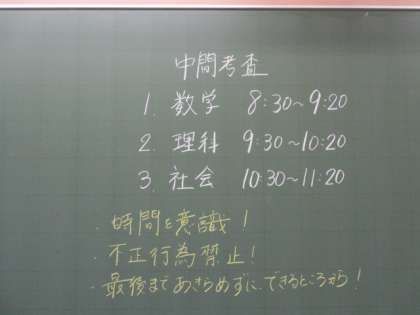 中間考査
1. 数学 8:30~9:20
2. 理科 9:30~10:20
3. 社会 10:30~11:20
・時間を意識!
・不正行為禁止!
・最後まであきらめずに、できるところから!